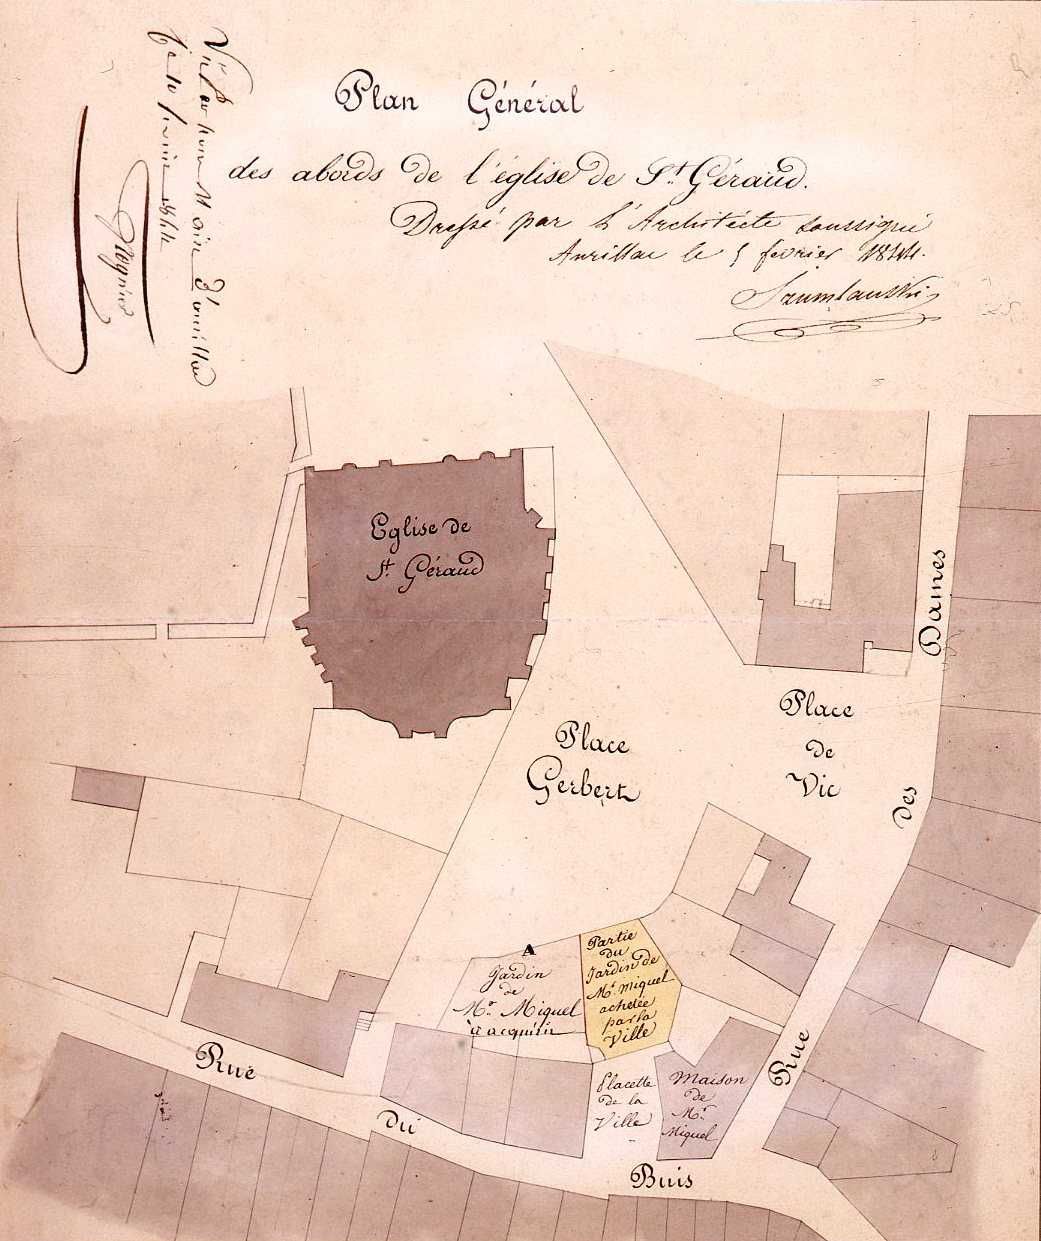 Plan Général
des abords de l'église de St. Géraud.
Dressé par l'Architecte soussigné
Aurillac le 5 fevrier 1844.
Vu par nous Maire d'Aurillac
1844
Eglise de
St. Géraud
Place
Gerbert
Place
de
Vic
Rue des Dames
A
Jardin
de
Mr. Miquel
à acquérir
Partie
du
Jardin de
Mr. Miquel
achetée
par la
Ville
Placette
de la
Ville
Maison
de
Mr.
Miquel
Rue du Buis